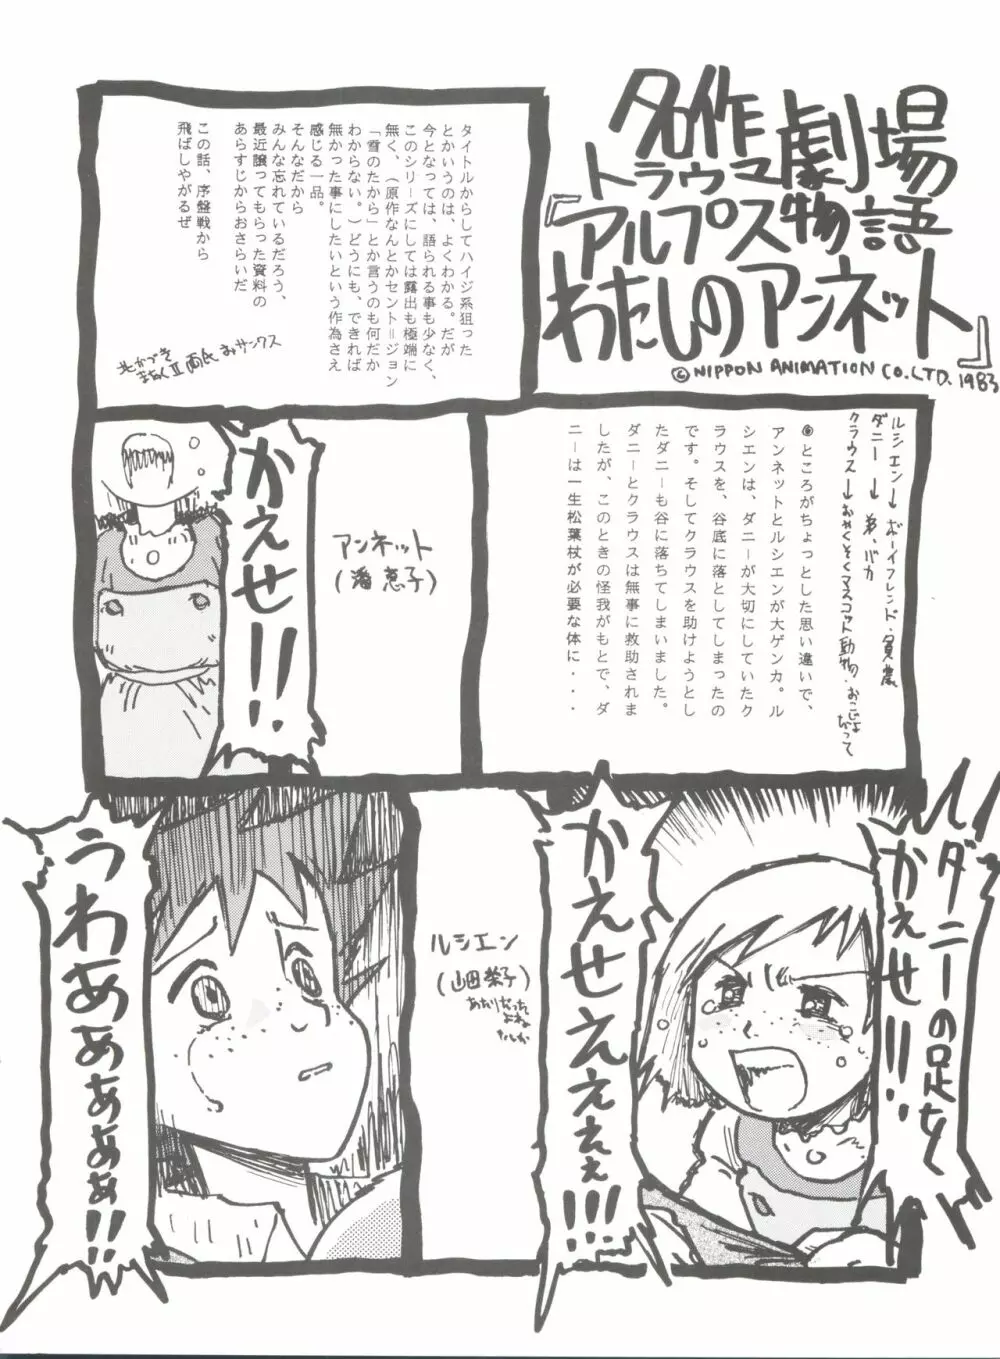 名作
トラウマ劇場
『アルプス物語
わたしのアンネット』
©NIPPON ANIMATION CO.LTD. 1983
タイトルからしてハイジ系狙った
とかいうのは、よくわかる。だが
今となっては、語られる事も少なく、
このシリーズにしては露出も極端に
無く、(原作なんとかセント=ジョン
「雪のたから」とか言うのも何だか
わからない。)どうにも、できれば
無かった事にしたいという作為さえ
感じる一品。
そんなだから
みんな忘れているだろう、
最近譲ってもらった資料の
あらすじからおさらいだ
この話、序盤戦から
飛ばしやがるぜ
ルシエン→ボーイフレンド・貧農
ダニー→弟、バカ
クラウス→おやくそくマスコット動物・おこじょ
だって
◎ところがちょっとした思い違いで、
アンネットとルシエンが大ゲンカ。ル
シエンは、ダニーが大切にしていたク
ラウスを、谷底に落としてしまったの
です。そしてクラウスを助けようとし
たダニーも谷に落ちてしまいました。
ダニーとクラウスは無事に救助されま
したが、このときの怪我がもとで、ダ
ニーは一生松葉杖が必要な体に・・・
アンネット
(潘恵子)
かえせ!!
ダニーの足を
かえせ!!
かえせえぇぇぇ!!!
ルシエン
(山田栄子)
うわあああぁぁ!!